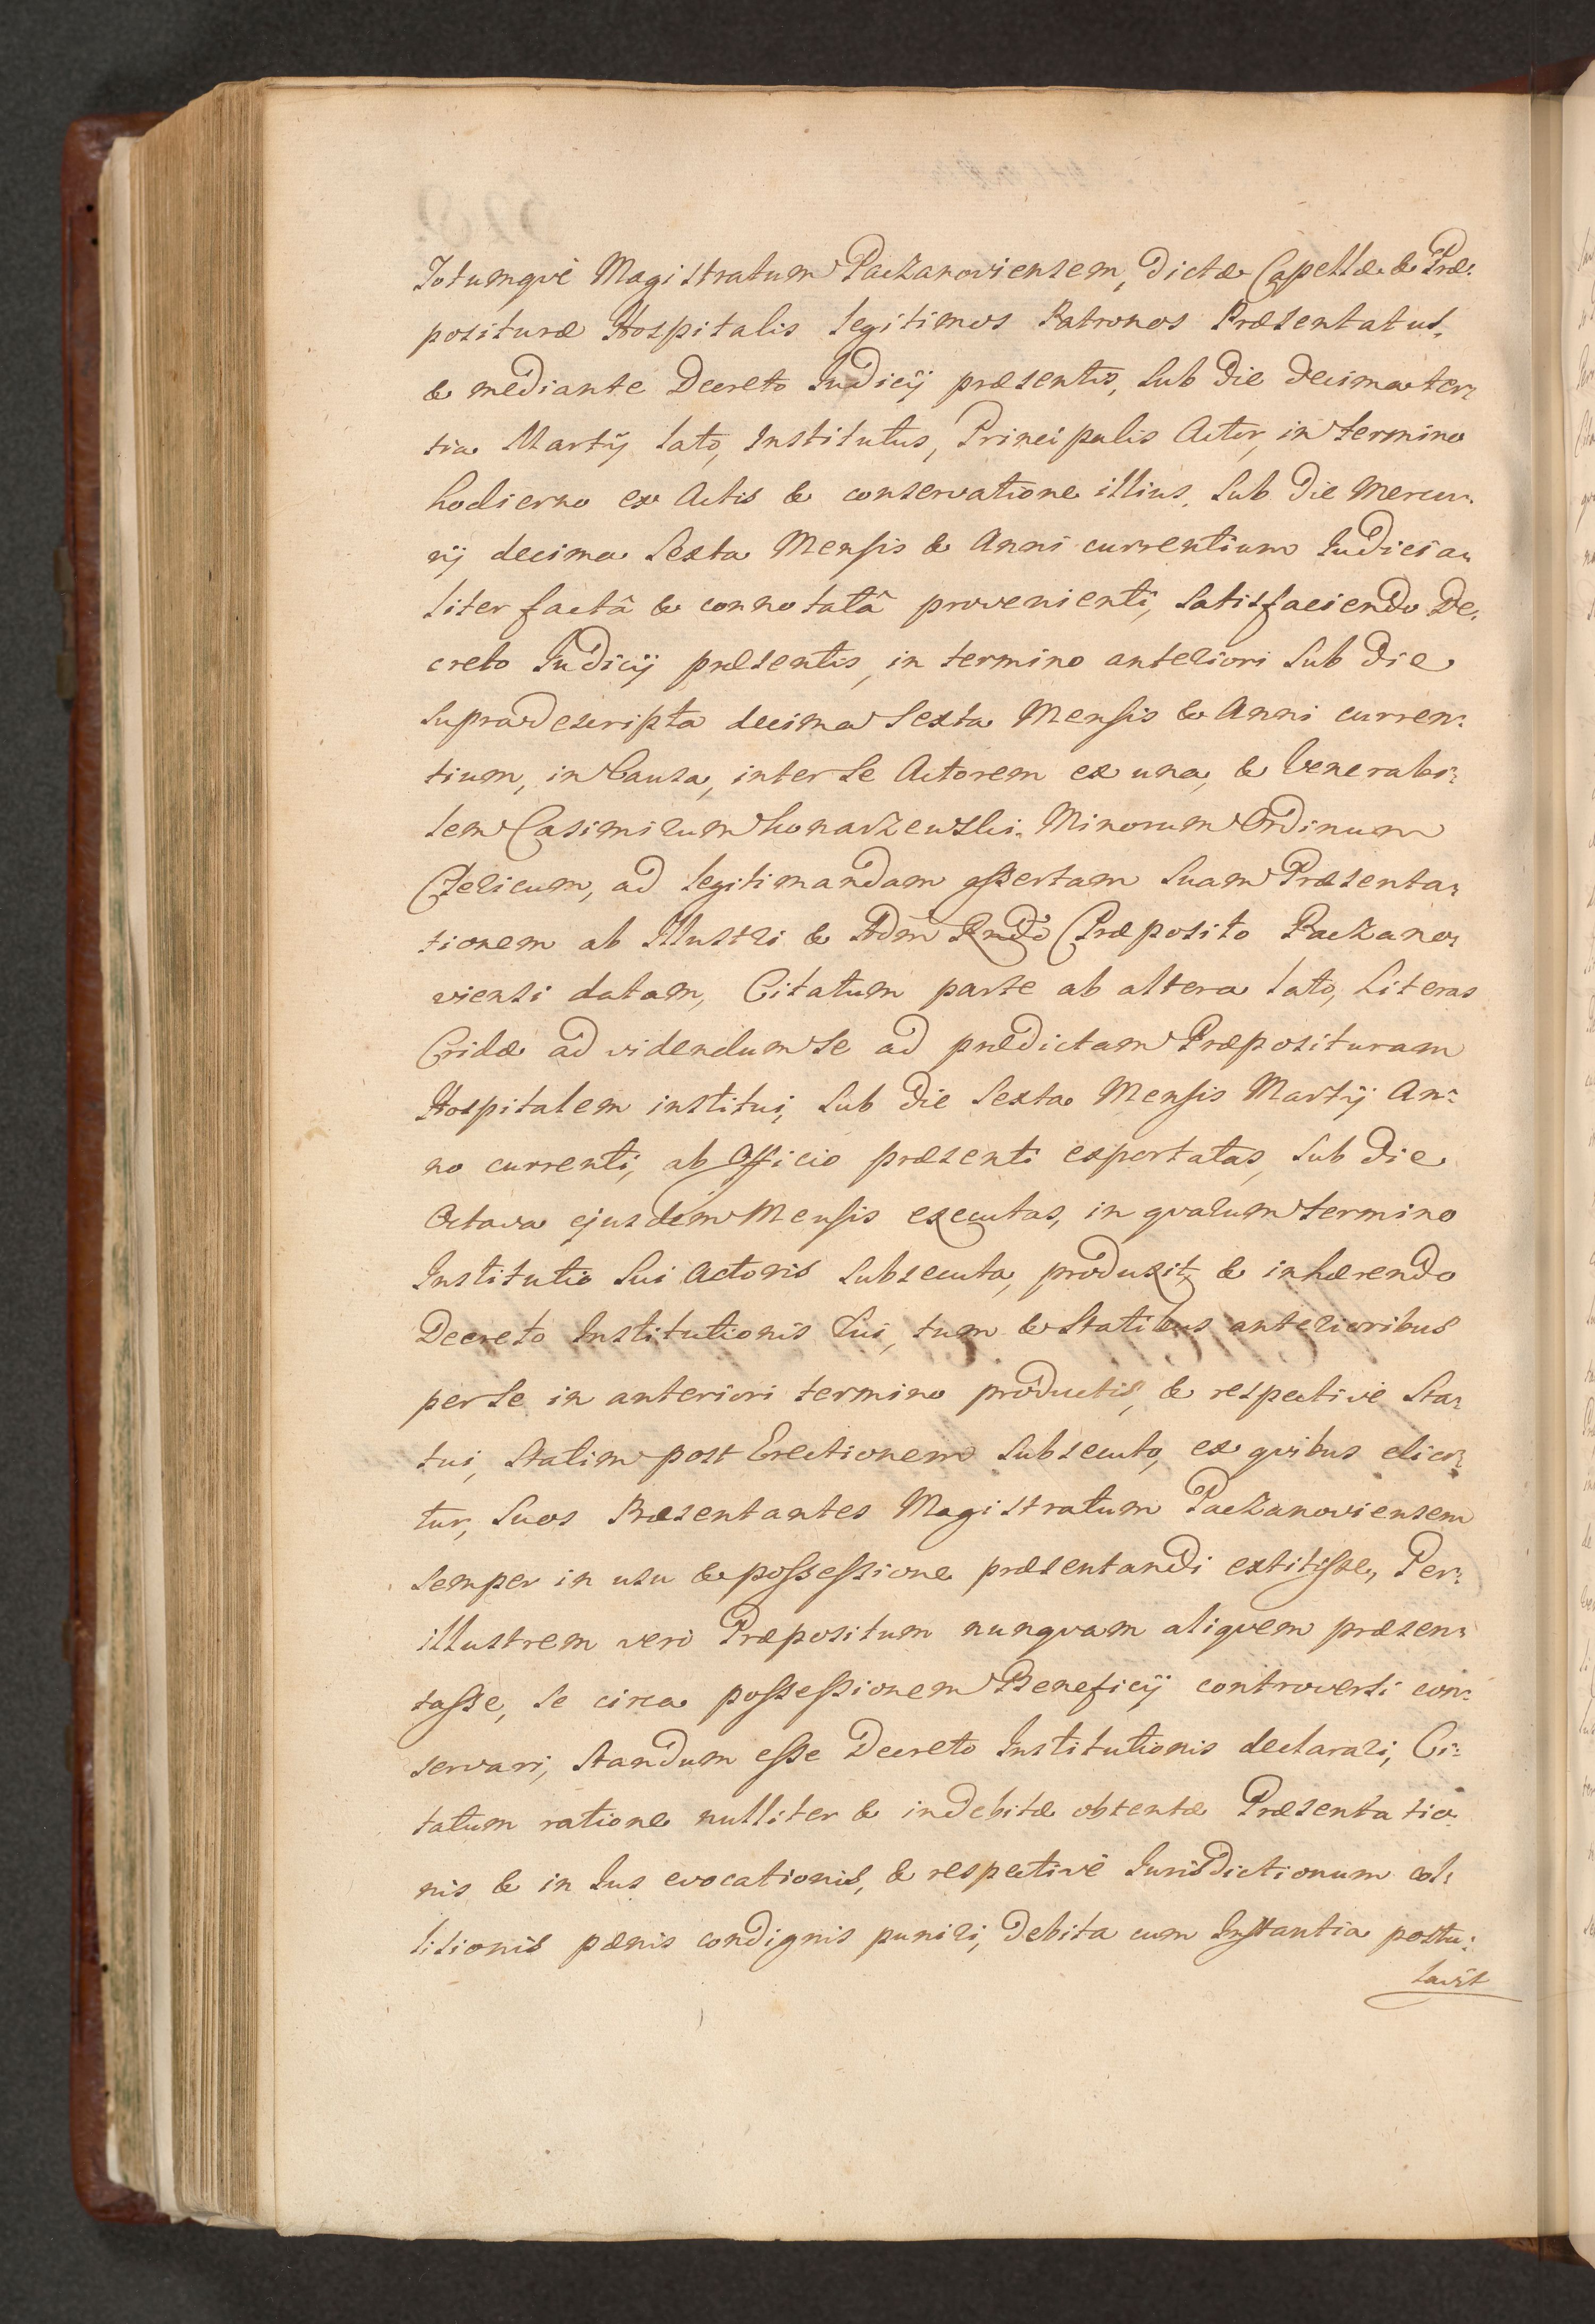 Totumqvè Magistratum Paczanoviensem, dictæ Capellæ & Præ:
posituræ Hospitalis legitimos Patronos Præsentatus,
& mediante Decreto Judicij præsentis, sub die decima ter:
tia Martij lato, Institutus, Principalis Actor, in termino
hodierno ex Actis & conservatione illius, sub die Mercu:
rij decima sexta Mensis & Anni currentium Judicia:
liter factâ & connotatâ provenienti, satisfaciendo De:
creto Judicij præsentis, in termino anteriori sub die
supradescripta decima sexta Mensis & Anni curren:
tium, in Causa, inter se Actorem ex una, & Venerabi:
lem Casimirum Konarzewski Minorum Ordinum
Clericum, ad legitimandam assertam suam Præsenta:
tionem ab Illustri & Adm Rndo Præposito Paczano:
viensi datam, Citatum parte ab altera lato, Literas
Cridæ ad videndum se ad prædictam Præposituram
Hospitalem institui, sub die sexta Mensis Martij An:
no currenti, ab Officio præsenti exportatas, sub die
Octava ejusdem Mensis executas, in qvarum termino
Institutio sui Actoris subsecuta, produxit, & inhærendo
Decreto Institutionis sui, tum & Statibus anterioribus
per se in anteriori termino productis, & respective Sta:
tui, statim post Erectionem subsecuto, ex qvibus elici:
tur, suos Præsentantes Magistratum Paczanoviensem
semper in usu & possessione præsentandi extitisse, Per:
illustrem verò Præpositum nunqvam aliqvem præsen:
tasse, se circa possessionem Beneficij controversi con:
servari, standum esse Decreto Institutionis declarari, Ci:
tatum ratione nulliter & indebitæ obtentæ Præsentatio
nis & in Jus evocationis, & respectivè Jurisdictionum col:
litionis pænis condignis puniri, debita cum Instantia postu:
lavit